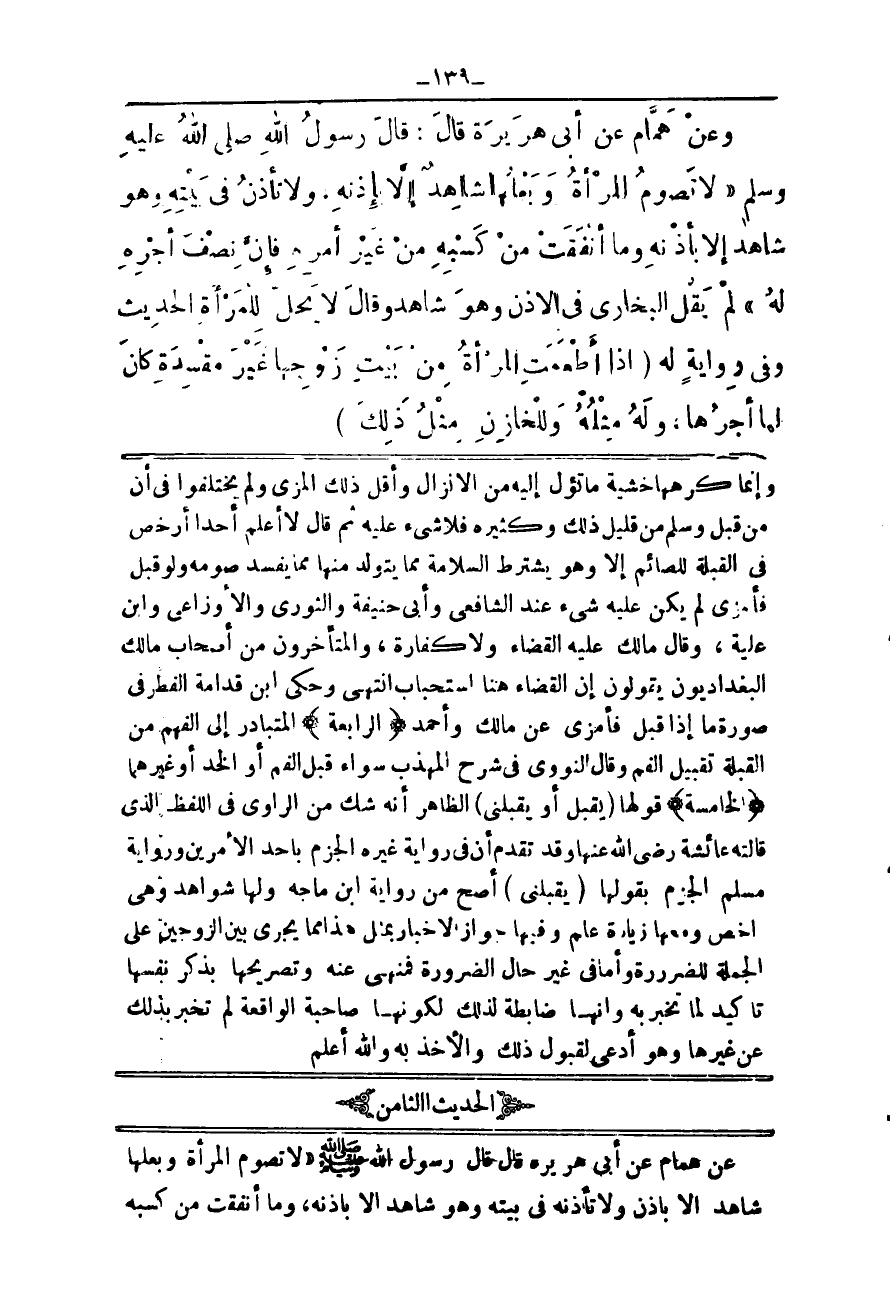 ـ١٣٩ـ
وعنْ همَّام عن أبى هريرَة قالَ : قالَ رسولُ اللهِ صلى اللهُ عليهِ
وسلم « لاتَصومُ المرْأةُ وَبَعْلُها شاهِدٌ إلَّا بإِذنهِ. ولاتأذنُ فى بَيْتِهِ وهو
شاهدٌ إلا بأذْنهِ وما أنفَقَتْ منْ كَسْبِهِ منْ غَيْرِ أمرهِ فإِنَّ نِصْفَ أجْرِهِ
لهُ » لمْ يَقُل البخارى فى الاذن وهوَ شاهدوقالَ لا يَحلّ للمَرْأةِ الحديث
وفى روايةٍ له ( اذا أطْعَمَتِ المرْأةُ مِنْ بَيْتِ زَوْجِها غَيْرَ مفْسِدَةٍ كانَ
لها أجرُها، ولَهُ مِثْلُهُ وَللْخازِنِ مِثلُ ذَلِكَ )
وإنما كرهها خشية ماتؤول إليه من الانزال وأقل ذلك المزى ولم يختلفوا فى أن
من قبل وسلم من قليل ذلك وكثيره فلاشىء عليه ثم قال لاأعلم أحدا أرخص
فى القبلة للصائم إلا وهو يشترط السلامة مما يتولد منها مما يفسد صومه ولو قبل
فأمزى لم يكن عليه شىء عند الشافعى وأبى حنيفة والثورى والأوزاعى وابن
علية ، وقال مالك عليه القضاء ولاكفارة ، والمتأخرون من أصحاب مالك
البغداديون يقولون إن القضاء هنا استحباب انتهى وحكى ابن قدامة الفطر فى
صورة ما إذا قبل فأمزى عن مالك وأحمد ﴿ الرابعة ﴾ المتبادر إلى الفهم من
القبلة تقبيل الفم وقال النووى فى شرح المهذب سواء قبل الفم أو الخد أوغيرهما
﴿الخامسة﴾ قولها (يقبل أو يقبلنى) الظاهر أنه شك من الراوى فى اللفظ الذى
قالته عائشة رضى الله عنها وقد تقدم أن فى رواية غيره الجزم باحد الأمرين ورواية
مسلم الجزم بقولها ( يقبلنى ) أصح من رواية ابن ماجه ولها شواهد وهى
اخص ومعها زيادة علم وفيها جواز الاخبار بمثل هذا مما يجرى بين الزوجين على
الجملة للضرررة وأما فى غير حال الضرورة فمنهى عنه وتصريحها بذكر نفسها
تاكيد لما تخبر به وانها ضابطة لذلك لكونها صاحبة الواقعة لم تخبر بذلك
عن غيرها وهو أدعى لقبول ذلك والأخذ به والله أعلم
الحديث االثامن
عن همام عن أبي هريره قال قال رسول الله ﷺ «لاتصوم المرأة وبعلها
شاهد الا باذن ولاتأذنه فى بيته وهو شاهد الا باذنه، وما أنفقت من كسبه